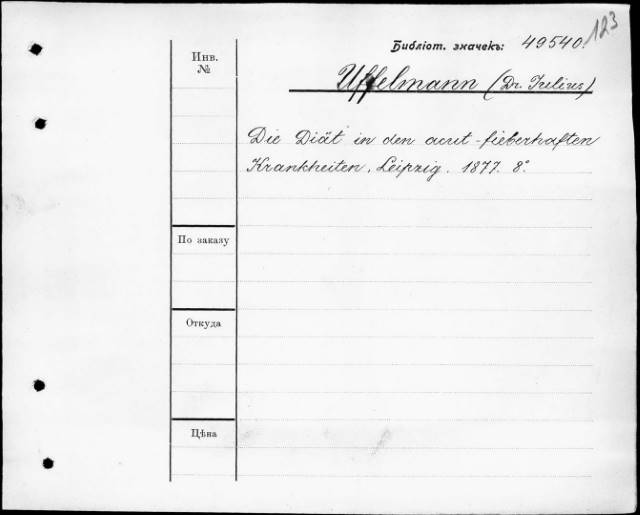 123
Библіот. значекъ: 49540.
Инв.
№
Uffelmann (Dr. Julius)
Die Diät in den acut-fieberhaften
Krankheiten, Leipzig. 1877. 8°.
По заказу
Откуда
Цѣна